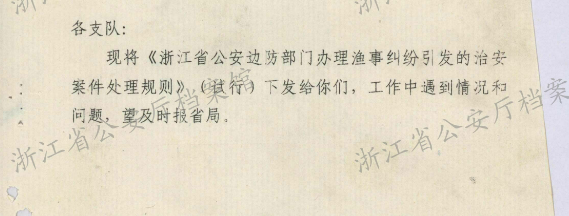 各支队:
现将《浙江省公安边防部门办理渔事纠纷引发的治安
案件处理规则》(试行)下发给你们,工作中遇到情况和
问题,望及时报省局。
浙江省公安厅档案馆
浙江省公安厅档案馆